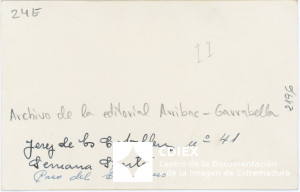 24E
II
Archivo de la editorial Arribas - Garrabella
2196
Jerez de los Caballeros nº 41
Semana Santa
Paso del
CDIEX
Centro de la Documentación
de la Imagen de Extremadura